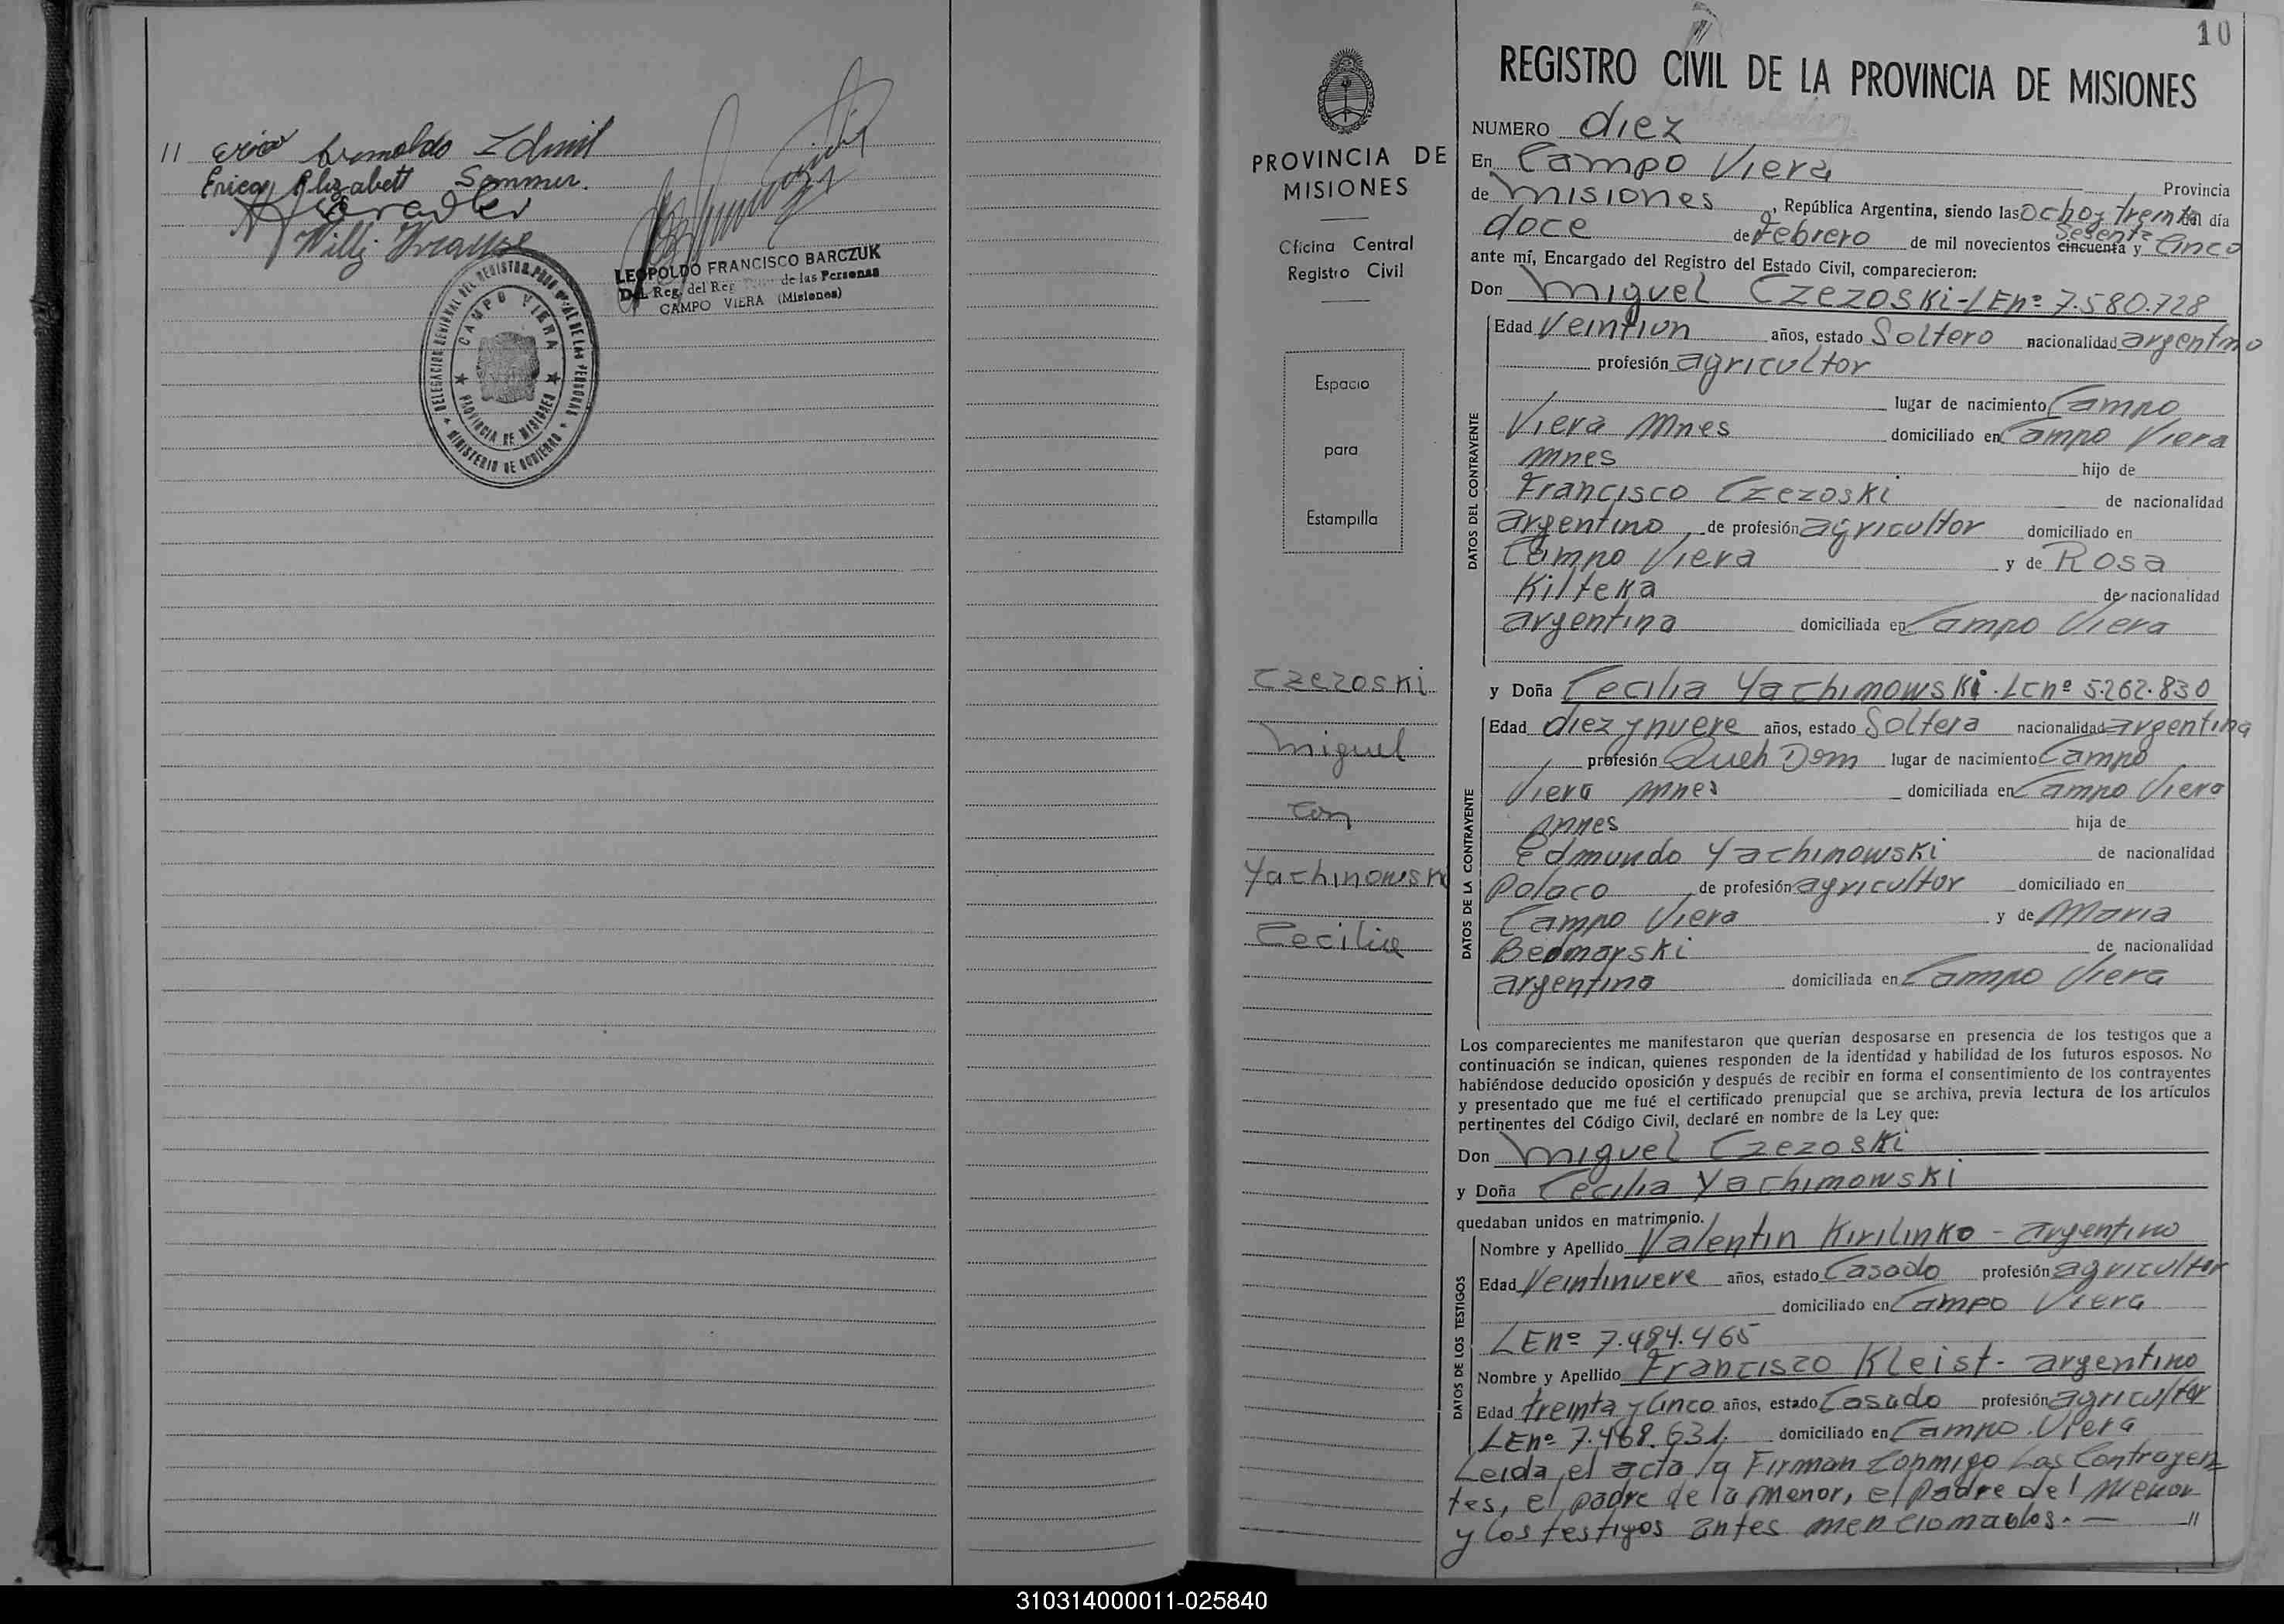 11 Erico Arnoldo Zdmil
Erica Elizabett Sommer.
Willy Krause
LEOPOLDO FRANCISCO BARCZUK
Del Reg. del Reg de las Personas
CAMPO VIERA (Misiones)
DELEGACION REGIONAL DEL REGISTRO PROVINCIAL DE LAS PERSONAS
MINISTERIO DE GOBIERNO
CAMPO VIERA
PROVINCIA DE MISIONES
10
PROVINCIA DE
MISIONES
Oficina Central
Registro Civil
Espacio
para
Estampilla
Czezoski
Miguel
con
Yachinowski
Cecilia
REGISTRO CIVIL DE LA PROVINCIA DE MISIONES
NUMERO diez
En Campo Viera Provincia
de Misiones, República Argentina, siendo las Ocho y treinta del día
doce de Febrero de mil novecientos cincuenta sesenta y cinco
ante mí, Encargado del Registro del Estado Civil, comparecieron:
Don Miguel Czezoski-LEnº 7.580.728
DATOS DEL CONTRAYENTE
Edad Veintiun años, estado Soltero nacionalidad argentino
profesión agricultor
lugar de nacimiento Campo
Viera Mnes domiciliado en Campo Viera
Mnes hijo de
Francisco Czezoski de nacionalidad
argentino de profesión agricultor domiciliado en
Campo Viera y de Rosa
Kilteka de nacionalidad
argentina domiciliada en Campo Viera
y Doña Cecilia Yachimowski. LCnº 5.262.830
DATOS DE LA CONTRAYENTE
Edad diez y nueve años, estado Soltera nacionalidad argentina
profesión Queh Dom lugar de nacimiento Campo
Viera Mnes domiciliada en Campo Viera
Mnes hija de
Edmundo Yachimowski de nacionalidad
Polaco de profesión agricultor domiciliado en
Campo Viera y de Maria
Bednarski de nacionalidad
argentina domiciliada en Campo Viera
Los comparecientes me manifestaron que querían desposarse en presencia de los testigos que a
continuación se indican, quienes responden de la identidad y habilidad de los futuros esposos. No
habiéndose deducido oposición y después de recibir en forma el consentimiento de los contrayentes
y presentado que me fué el certificado prenupcial que se archiva, previa lectura de los artículos
pertinentes del Código Civil, declaré en nombre de la Ley que:
Don Miguel Czezoski
y Doña Cecilia Yachimowski
quedaban unidos en matrimonio.
DATOS DE LOS TESTIGOS
Nombre y Apellido Valentin Kirilinko - argentino
Edad Veintinueve años, estado Casado profesión agricultor
domiciliado en Campo Viera
LEnº 7.484.465
Nombre y Apellido Francisco Kleist - argentino
Edad treinta y cinco años, estado Casado profesión agricultor
LEnº 7.468.631. domiciliado en Campo Viera
Leida el acta la Firman conmigo Los Contrayen
tes, el padre de la menor, el padre del menor
y los testigos antes mencionados. — 11
310314000011-025840